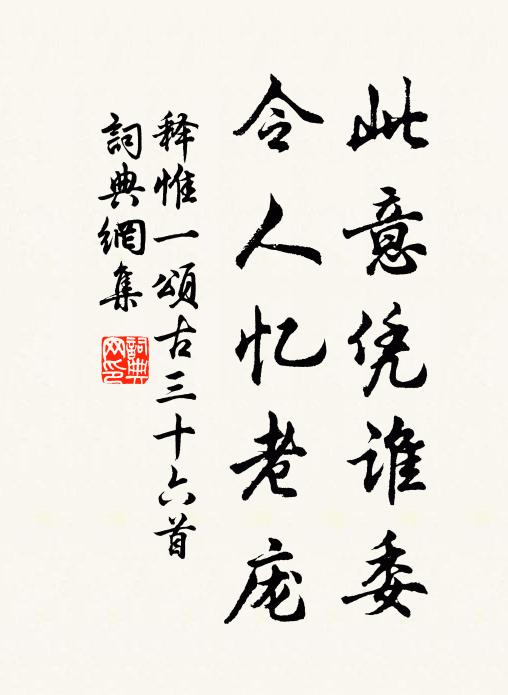 此意凭谁委
令人忆老庞
释惟一颂古三十六首
詞典網集
詞典網印